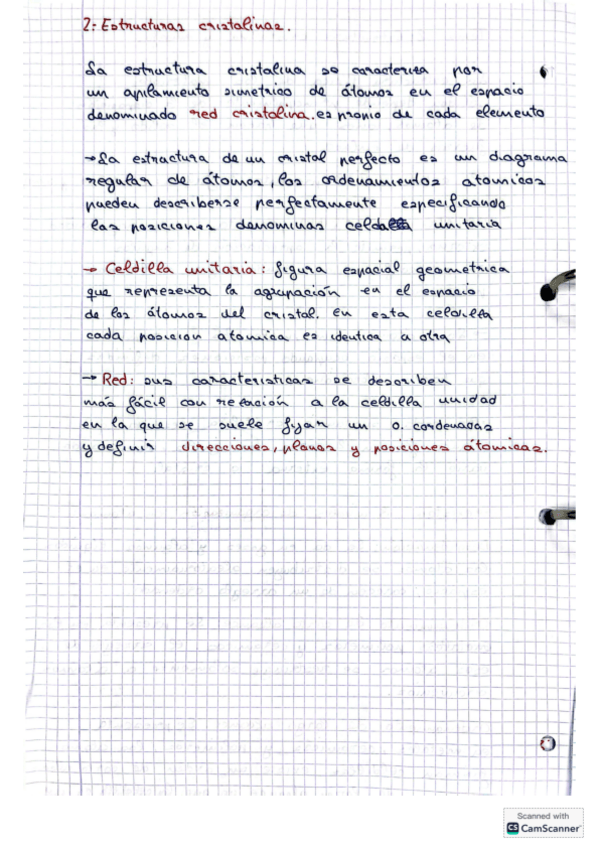 2: Estructuras cristalinas.
La estructura cristalina se caracteriza por
un apilamiento simetrico de átomos en el espacio
denominado red cristalina. es propio de cada elemento
→ La estractura de un cristal perfecto es un diagrama
regular de átomos, los ordenamientos atomicos
pueden describerse perfectamente especificando
las posiciones denominas celda unitaria
→ Celdilla unitaria: figura espacial geometrica
que representa la agrupación en el espacio
de los átomos del cristal. En esta celdilla
cada posicion atomica es identica a otra
→ Red: sus caracteristicas se describen
más fácil con relación a la celdilla unidad
en la que se suele fijar un o. cordenadas
y definir direcciones, planos y posiciones átomicas.
Scanned with
CS CamScanner